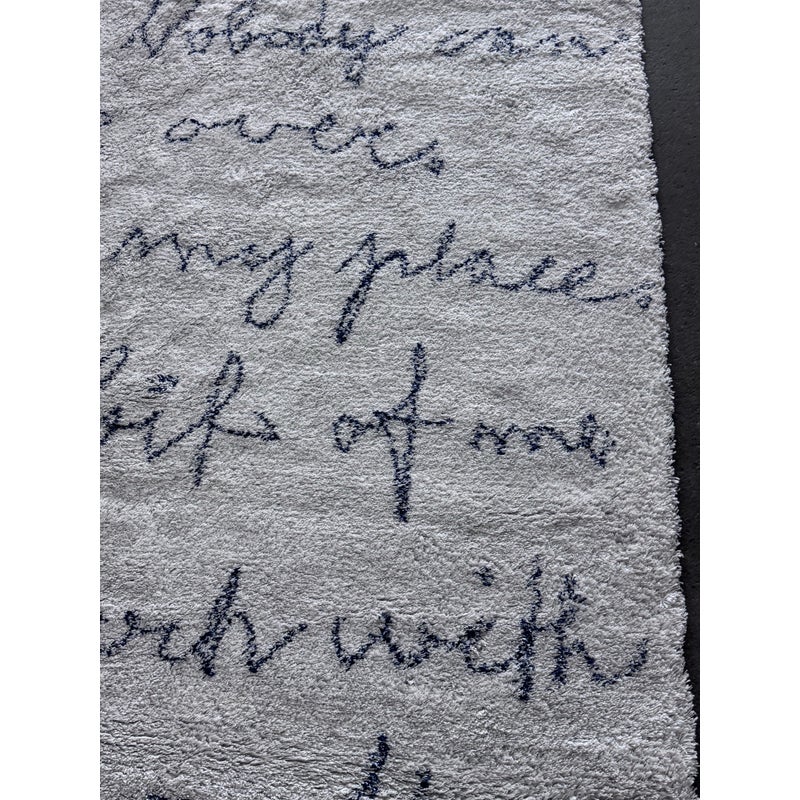 Nobody can
over.
my place.
bit of me
with